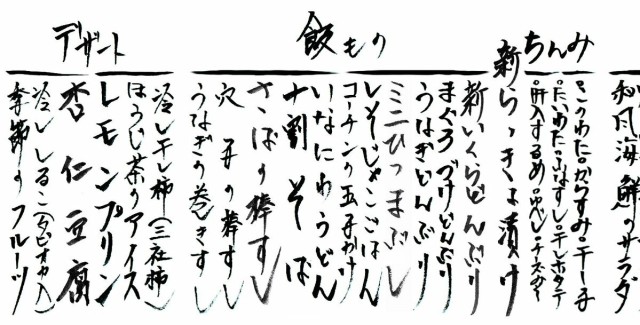 和風海鮮のサラダ
ちんみ
。このわた。からすみ。干し子
。たいわた。いなずし。干しホタテ
。肝入するめ。兜し。チーズ
新らっきょ漬け
飯もの
新いくらどんぶり
まぐろづけどんぶり
うなぎどんぶり
ミニひつまぶし
しそじゃこごはん
コーチンの玉子かけ
いなにわうどん
十割そば
さばの棒すし
穴子の棒すし
うなぎの巻きすし
デザート
冷し干し柿(三社柿)
ほうじ茶のアイス
レモンプリン
杏仁豆腐
冷ししるこ(タピオカ入)
季節のフルーツ